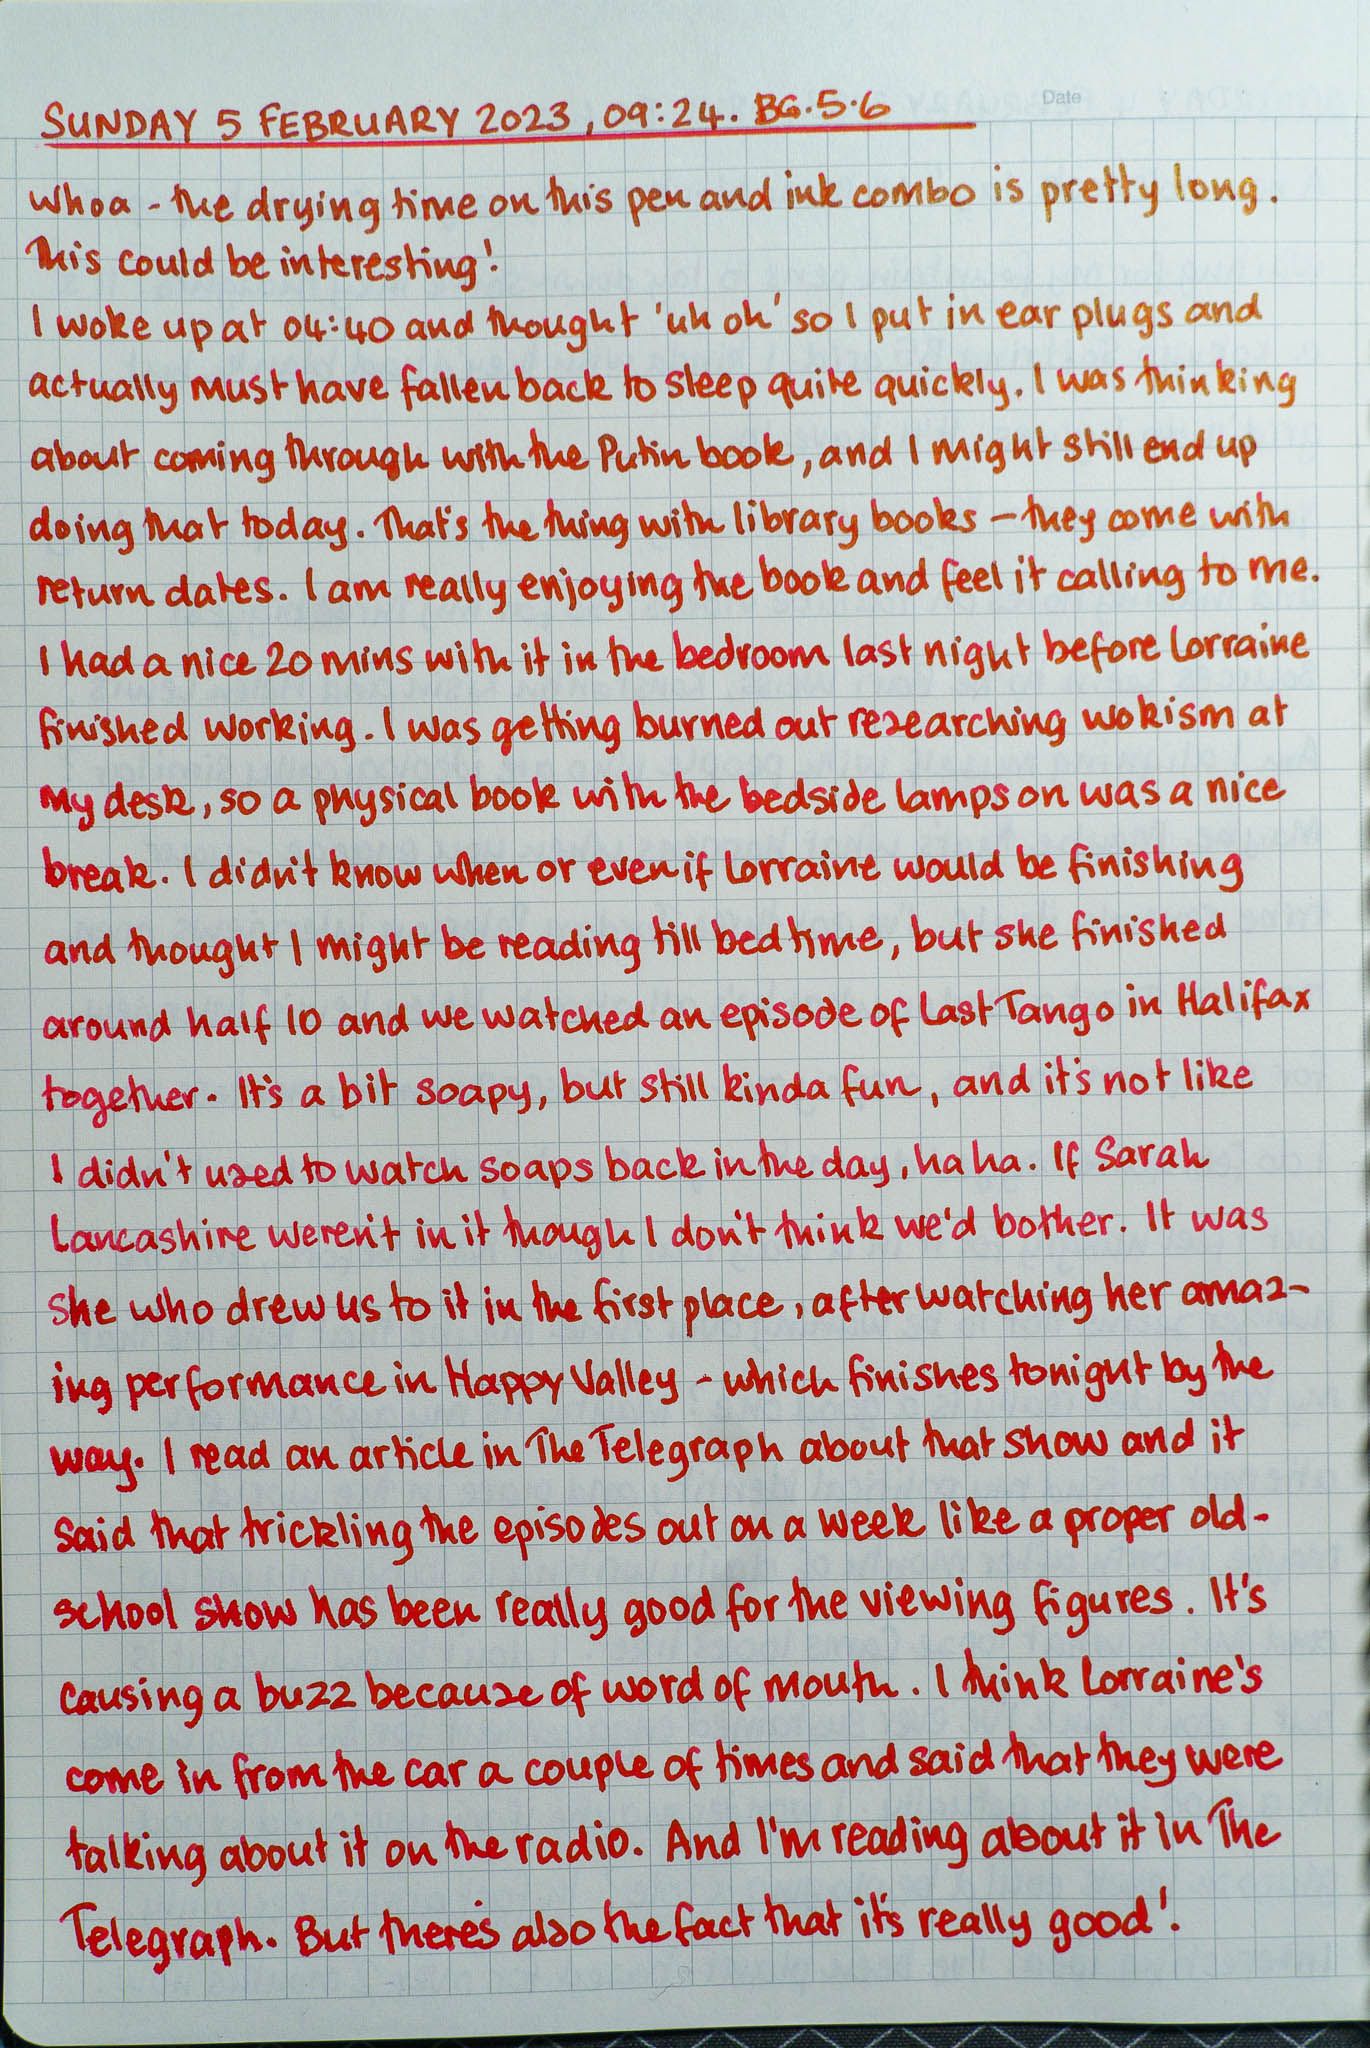 Date
SUNDAY 5 FEBRUARY 2023, 09:24. BG.5.6
Whoa - the drying time on this pen and ink combo is pretty long.
This could be interesting!
I woke up at 04:40 and thought 'uh oh' so I put in ear plugs and
actually must have fallen back to sleep quite quickly. I was thinking
about coming through with the Putin book, and I might still end up
doing that today. That's the thing with library books - they come with
return dates. I am really enjoying the book and feel it calling to me.
I had a nice 20 mins with it in the bedroom last night before Lorraine
finished working. I was getting burned out researching wokism at
my desk, so a physical book with the bedside lamps on was a nice
break. I didn't know when or even if Lorraine would be finishing
and thought I might be reading till bedtime, but she finished
around half 10 and we watched an episode of Last Tango in Halifax
together. It's a bit soapy, but still kinda fun, and it's not like
I didn't used to watch soaps back in the day, ha ha. If Sarah
Lancashire weren't in it though I don't think we'd bother. It was
she who drew us to it in the first place, after watching her amaz-
ing performance in Happy Valley - which finishes tonight by the
way. I read an article in The Telegraph about that show and it
said that trickling the episodes out on a week like a proper old-
school show has been really good for the viewing figures. It's
causing a buzz because of word of mouth. I think Lorraine's
come in from the car a couple of times and said that they were
talking about it on the radio. And I'm reading about it in The
Telegraph. But there's also the fact that it's really good!